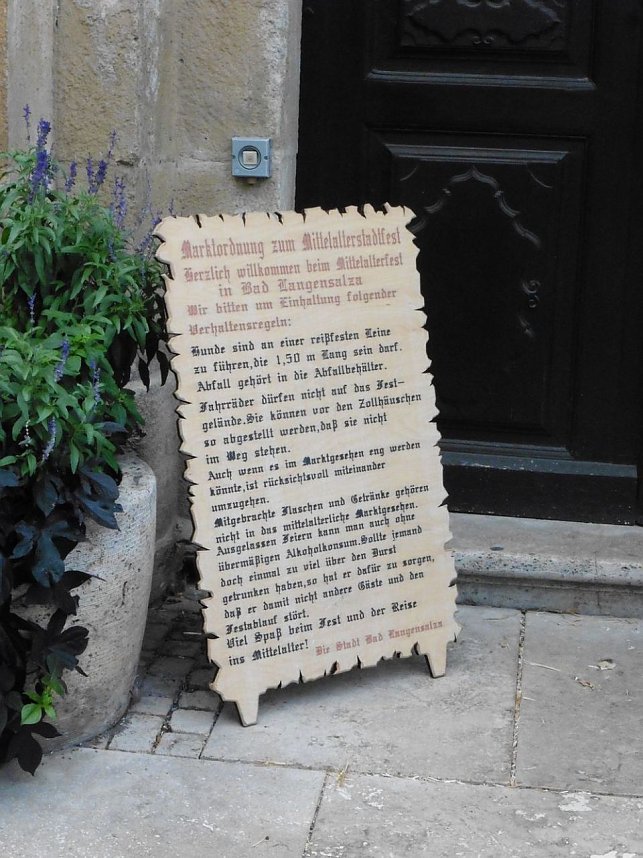 Marktordnung zum Mittelalterstadtfest
Herzlich willkommen beim Mittelalterfest
in Bad Langensalza
Wir bitten um Einhaltung folgender
Verhaltensregeln:
Hunde sind an einer reißfesten Leine
zu führen,die 1,50 m Lang sein darf.
Abfall gehört in die Abfallbehälter.
Fahrräder dürfen nicht auf das Fest-
gelände.Sie können vor den Zollhäuschen
so abgestellt werden,daß sie nicht
im Weg stehen.
Auch wenn es im Marktgesehen eng werden
könnte,ist rücksichtsvoll miteinander
umzugehen.
Mitgebrachte Flaschen und Getränke gehören
nicht in das mittelalterliche Marktgesehen.
Ausgelassen Feiern kann man auch ohne
übermäßigen Alkoholkonsum.Sollte jemand
doch einmal zu viel über den Durst
getrunken haben,so hat er dafür zu sorgen,
daß er damit nicht andere Gäste und den
Festablauf stört.
Viel Spaß beim Fest und der Reise
ins Mittelalter! Die Stadt Bad Langensalza